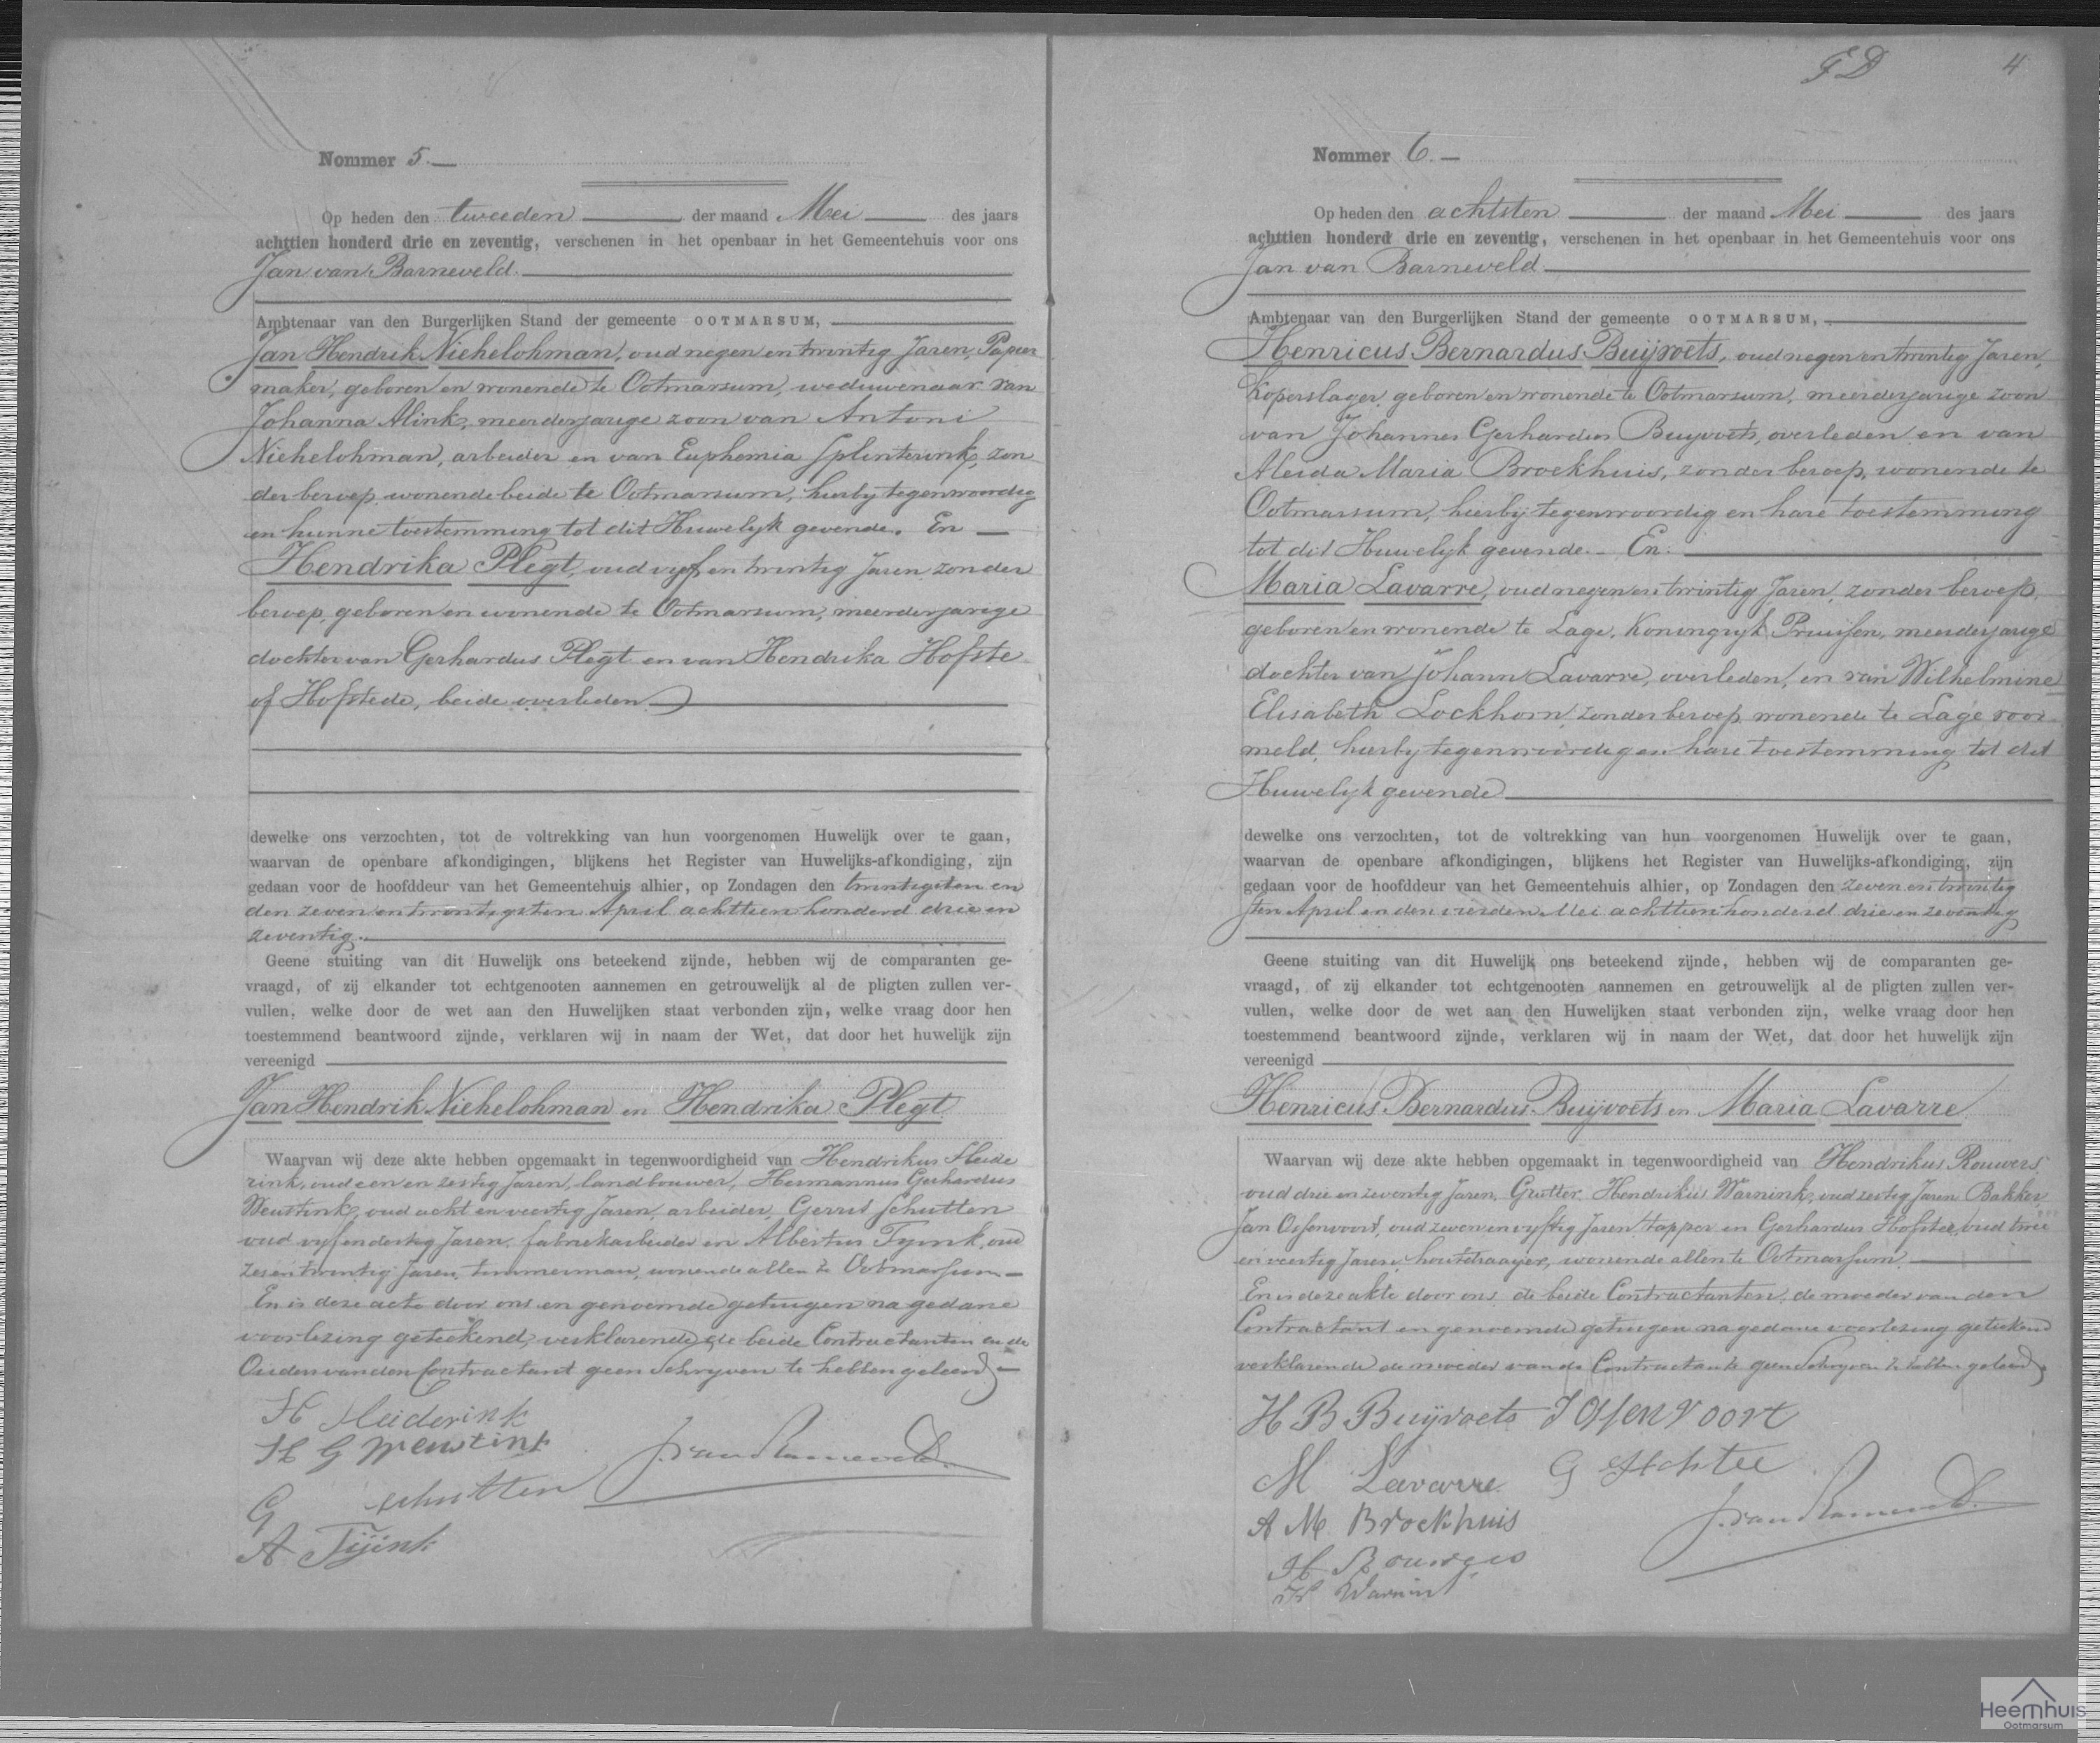 Nommer 5.
Op heden den tweeden der maand Mei des jaars
achttien honderd drie en zeventig, verschenen in het openbaar in het Gemeentehuis voor ons
Jan van Barneveld.
Ambtenaar van den Burgerlijken Stand der gemeente OOTMARSUM,
Jan Hendrik Niehelohman, oud negen en twintig Jaren, Papier
maker, geboren en wonende te Ootmarsum, weduwenaar van
Johanna Alink, meerderjarige zoon van Antoni
Niehelohman, arbeider en van Euphemia Splinterink, zon
der beroep wonende beide te Ootmarsum, hierby tegenwoordig
en hunne toestemming tot dit Huwelyk gevende. En
Hendrika Plegt, oud vyf en twintig Jaren, zonder
beroep, geboren en wonende te Ootmarsum, meerderjarige
dochter van Gerhardus Plegt en van Hendrika Hofste
of Hofstede, beide overleden
dewelke ons verzochten, tot de voltrekking van hun voorgenomen Huwelijk over te gaan,
waarvan de openbare afkondigingen, blijkens het Register van Huwelijks-afkondiging, zijn
gedaan voor de hoofddeur van het Gemeentehuis alhier, op Zondagen den twintigsten en
den zeven en twintigsten April achttien honderd drie en
zeventig.
Geene stuiting van dit Huwelijk ons beteekend zijnde, hebben wij de comparanten ge-
vraagd, of zij elkander tot echtgenooten aannemen en getrouwelijk al de pligten zullen ver-
vullen, welke door de wet aan den Huwelijken staat verbonden zijn, welke vraag door hen
toestemmend beantwoord zijnde, verklaren wij in naam der Wet, dat door het huwelijk zijn
vereenigd
Jan Hendrik Niehelohman en Hendrika Plegt
Waarvan wij deze akte hebben opgemaakt in tegenwoordigheid van Hendrikus Heide
rink, oud een en zestig Jaren, landbouwer, Hermannus Gerhardus
Weustink, oud acht en veertig Jaren, arbeider, Gerrit Schutten
oud vyf en dertig Jaren, fabriekarbeider en Albertus Tyink, oud
zes en twintig Jaren, timmerman, wonende allen te Ootmarsum
En is deze acte door ons en genoemde getuigen na gedane
voorlezing geteekend, verklarende de beide Contractanten en de
Ouders van den Contractant geen Schryven te hebben geleerd
H Heiderink
H G Weustink
G Schutten
J. van Barneveld.
A Tijink
F D 4
Nommer 6.
Op heden den achtsten der maand Mei des jaars
achttien honderd drie en zeventig, verschenen in het openbaar in het Gemeentehuis voor ons
Jan van Barneveld
Ambtenaar van den Burgerlijken Stand der gemeente OOTMARSUM,
Henricus Bernardus Buijvoets, oud negen en twintig Jaren,
Koperslager, geboren en wonende te Ootmarsum, meerderjarige zoon
van Johannes Gerhardus Buyvoets, overleden en van
Aleida Maria Broekhuis, zonder beroep, wonende te
Ootmarsum, hierby tegenwoordig en hare toestemming
tot dit Huwelyk gevende. En.
Maria Lavarre, oud negen en twintig Jaren, zonder beroep,
geboren en wonende te Lage, Koningryk Pruissen, meerderjarige
dochter van Johann Lavarre, overleden, en van Wilhelmine
Elisabeth Lockhorn, zonder beroep, wonende te Lage voor
meld, hierby tegenwoordig en hare toestemming tot dit
Huwelyk gevende
dewelke ons verzochten, tot de voltrekking van hun voorgenomen Huwelijk over te gaan,
waarvan de openbare afkondigingen, blijkens het Register van Huwelijks-afkondiging, zijn
gedaan voor de hoofddeur van het Gemeentehuis alhier, op Zondagen den zeven en twintig
sten April en den vierden Mei achttien honderd drie en zeventig
Geene stuiting van dit Huwelijk ons beteekend zijnde, hebben wij de comparanten ge-
vraagd, of zij elkander tot echtgenooten aannemen en getrouwelijk al de pligten zullen ver-
vullen, welke door de wet aan den Huwelijken staat verbonden zijn, welke vraag door hen
toestemmend beantwoord zijnde, verklaren wij in naam der Wet, dat door het huwelijk zijn
vereenigd
Henricus Bernardus Buijvoets en Maria Lavarre
Waarvan wij deze akte hebben opgemaakt in tegenwoordigheid van Hendrikus Rouwers
oud drie en zeventig Jaren, Grutter, Hendrikus Warnink, oud zestig Jaren Bakker,
Jan Ossenvoort, oud zeven en vyftig Jaren, tapper en Gerhardus Hofstee, oud twee
en veertig Jaren, houtdraayer, wonende allen te Ootmarsum
En is deze akte door ons de beide Contractanten, de moeder van den
Contractant en genoemde getuigen na gedane voorlezing geteekend
verklarende de moeder van de Contractante geen Schryven te hebben geleerd
H B Buijvoets J Ossenvoort
M Lavarre G Hofstee
A M Broekhuis
J. van Barneveld.
H Rouwers
H Warnink
Heemhuis
Ootmarsum